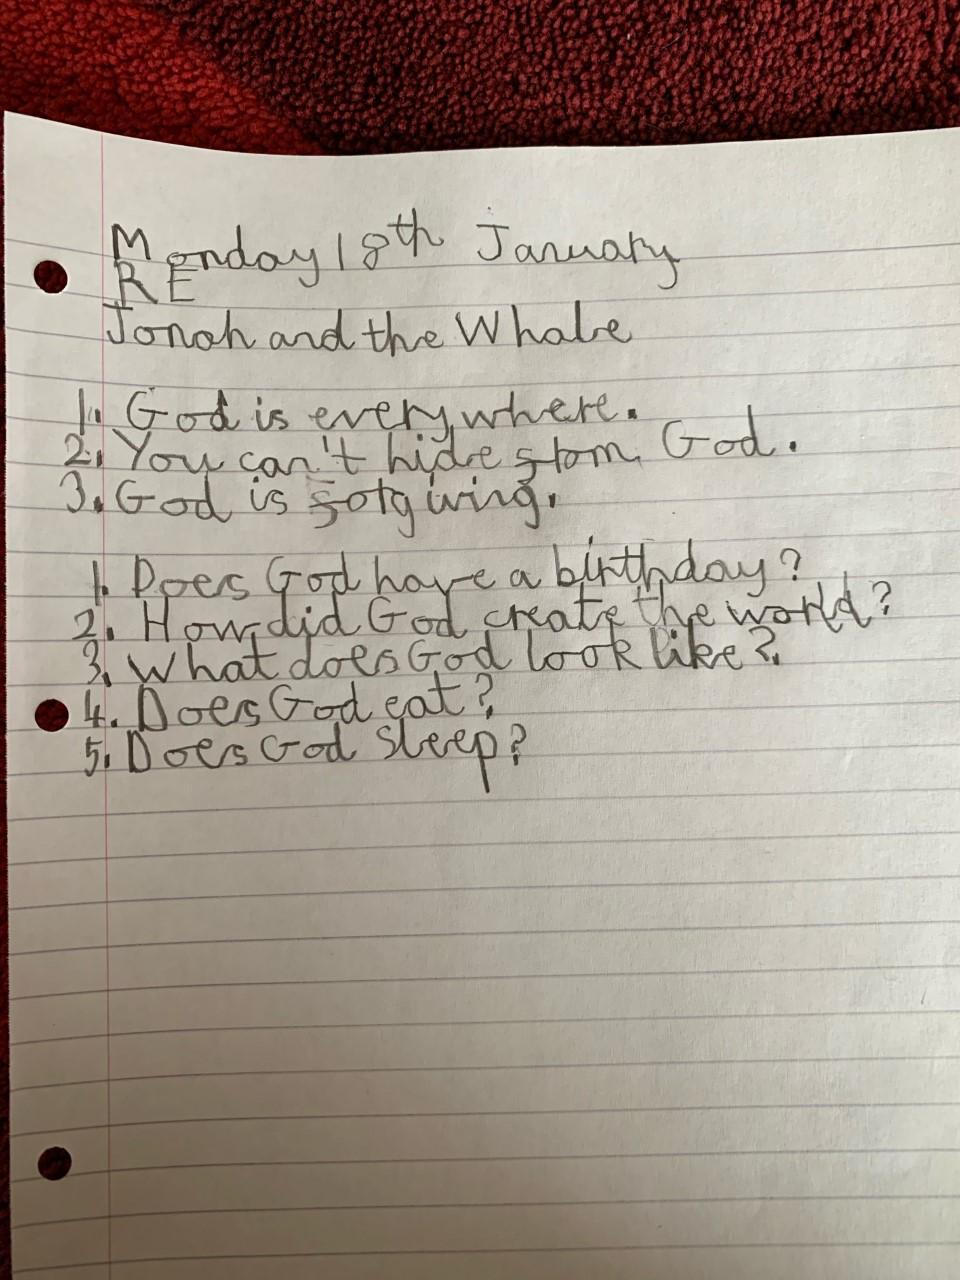 Monday 18th January
RE
Jonah and the Whale
1. God is everywhere.
2. You can't hide from God.
3. God is forgiving.
1. Does God have a birthday?
2. How did God create the world?
3. What does God look like?
4. Does God eat?
5. Does God sleep?